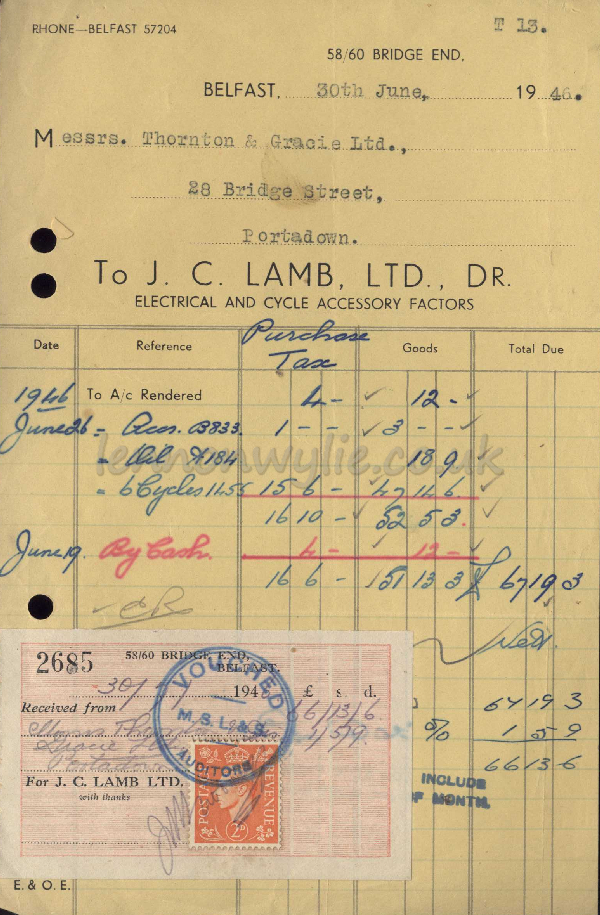 RHONE—BELFAST 57204
T 13.
58/60 BRIDGE END,
BELFAST, 30th June, 19 46.
Messrs. Thornton & Gracie Ltd.,
28 Bridge Street,
Portadown.
To J. C. LAMB, LTD., DR.
ELECTRICAL AND CYCLE ACCESSORY FACTORS
Date Reference Purchase Tax Goods Total Due
1946 To A/c Rendered 4 - 12 -
June 26 = Accs. B833. 1 - - 3 - -
lennonwylie.co.uk
" Oil 184 18 9
" 6 Cycles 1455 15 6 - 47 14 6
16 10 - 52 5 3.
June 19. By Cash. 4 - 12 -
16 6 - 51 13 3 £ 67 19 3
Nett.
2685 58/60 BRIDGE END,
BELFAST.
30/ 194 £ s. d.
Received from 66/13/6
1/5/9
Gracie
Portadown
For J. C. LAMB LTD.
with thanks
VOUCHED
M. S. L. & S.
AUDITORS
POSTAGE REVENUE
2D
67 19 3
% 1 5 9
66 13 6
INCLUDE
OF MONTH.
E. & O. E.